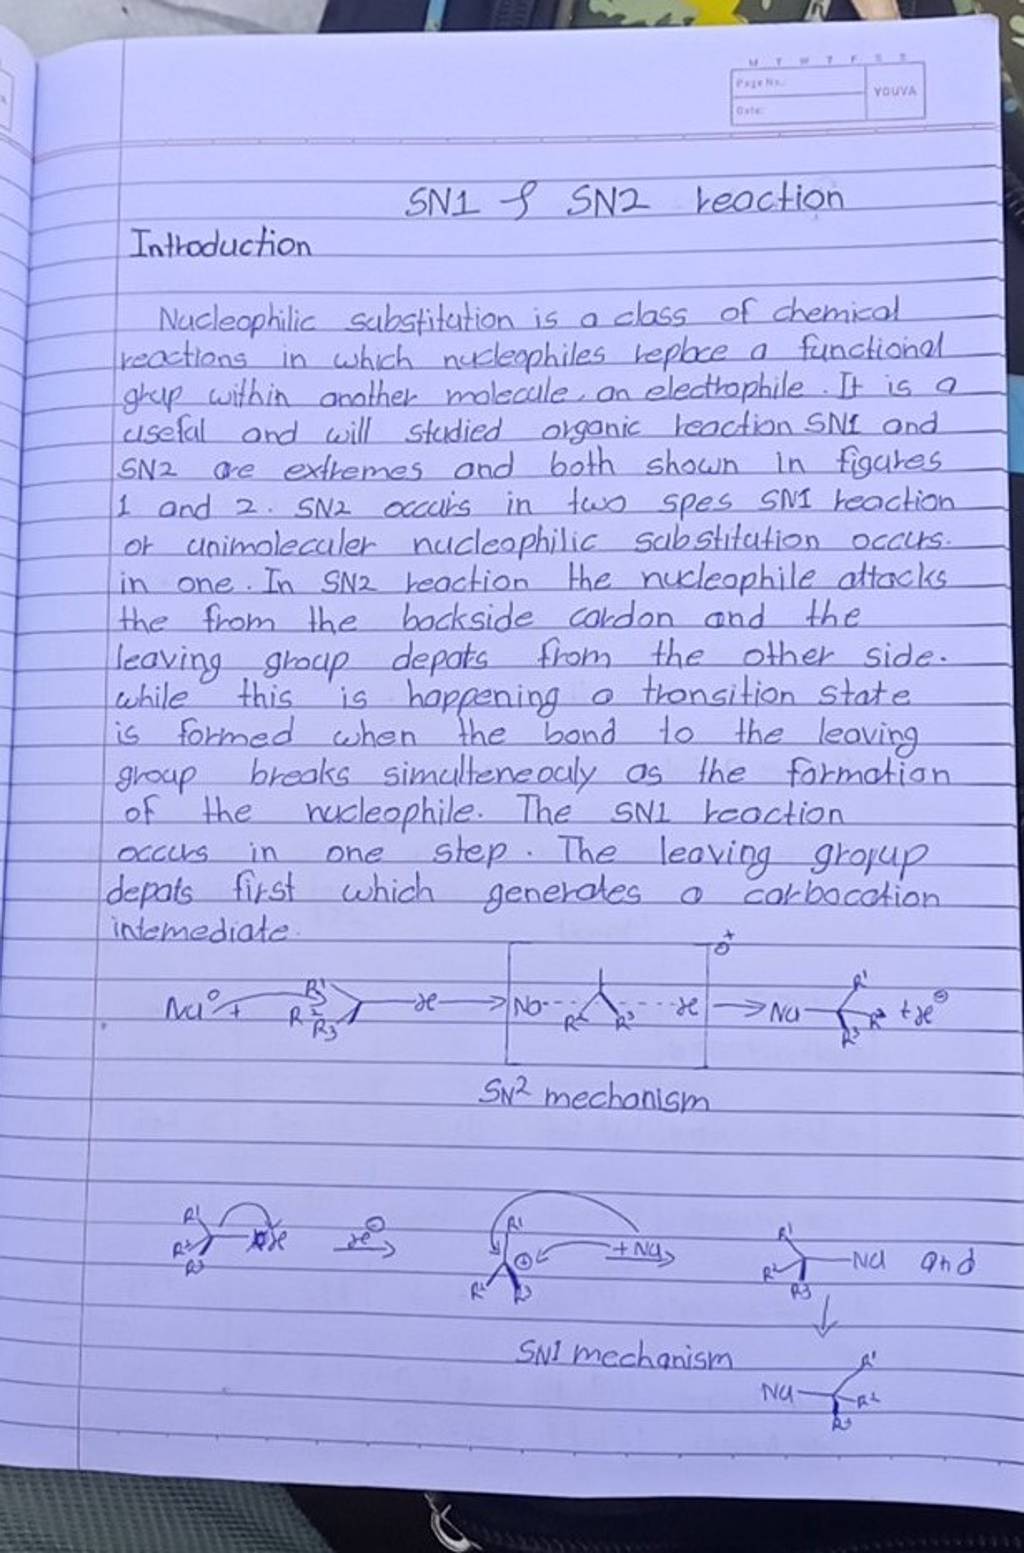 M T W T F S S
Page No.:
Date:
YOUVA
SN1 & SN2 reaction
Introduction
Nucleophilic substitution is a class of chemical
reactions in which nucleophiles replace a functional
group within another molecule, an electrophile. It is a
useful and will studied organic reaction SN1 and
SN2 are extremes and both shown in figures
1 and 2. SN2 occurs in two spes SN1 reaction
or unimoleculer nucleophilic substitution occurs.
in one. In SN2 reaction the nucleophile attacks
the from the backside cardon and the
leaving group depats from the other side.
while this is happening a transition state
is formed when the bond to the leaving
group breaks simulteneouly as the formation
of the nucleophile. The SN1 reaction
occurs in one step. The leaving groyup
depats first which generates a carbocation
intemediate.
Nu + R1 R2 R3 → Nu R2 R3 → Nu R1 R2 R3 +
SN2 mechanism
R1 R2 R3 → R1 R2 R3 + Nu → R1 R2 R3 Nu and
SN1 mechanism
Nu R1 R2 R3